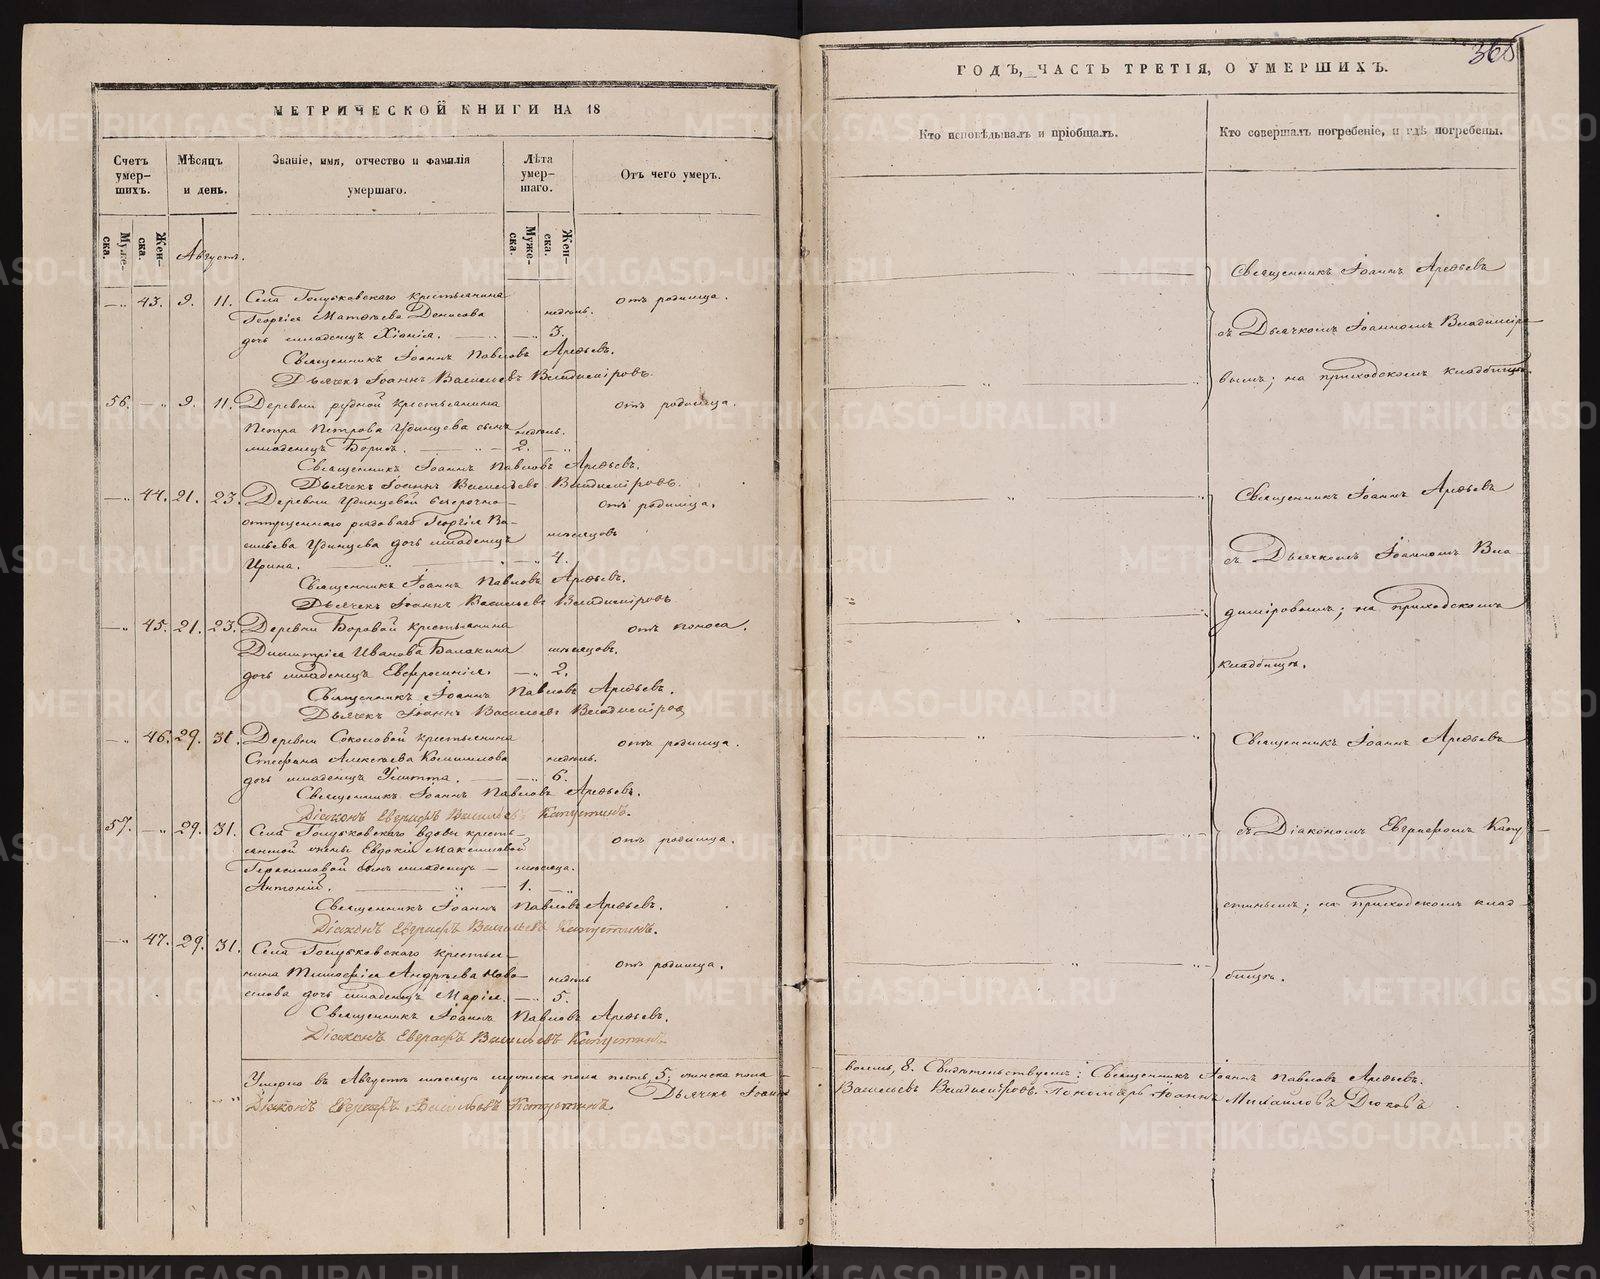 МЕТРИЧЕСКОЙ КНИГИ НА 18
Счетъ умер-шихъ.
Мѣсяцъ и день.
Званіе, имя, отчество и фамилія умершаго.
Лѣта умер-шаго.
Отъ чего умеръ.
Муже-ска.
Жен-ска.
Августъ.
Муже-ска.
Жен-ска.
43. 9. 11. Села крестьянина
Георгія Матѳѣева Денисова недѣль. отъ родимца.
дочь младенецъ Хіонія. 3.
Священникъ Іоаннъ Павловъ Арефьевъ.
Дьячекъ Іоаннъ Васильевъ Владиміровъ.
56. 9. 11. Деревни рудной крестьянина отъ родимца.
Петра Петрова Удинцева сынъ недѣль.
младенецъ Борисъ. 2.
Священникъ Іоаннъ Павловъ Арефьевъ.
Дьячекъ Іоаннъ Васильевъ Владиміровъ.
44. 21. 23. Деревни Удинцевой безсрочно- отъ родимца.
отпущеннаго рядоваго Георгія Ва-
сильева Удинцева дочь младенецъ мѣсяцовъ
Ирина. 4.
Священникъ Іоаннъ Павловъ Арефьевъ.
Дьячекъ Іоаннъ Васильевъ Владиміровъ
45. 21. 23. Деревни Боровой крестьянина отъ поноса.
Димитрія Иванова Балакина мѣсяцовъ.
дочь младенецъ Евфросинія. 2.
Священникъ Іоаннъ Павловъ Арефьевъ.
Дьячекъ Іоаннъ Васильевъ Владиміровъ
46. 29. 31. Деревни Соколовой крестьянина отъ родимца.
Стефана Алексѣева недѣль.
дочь младенецъ 6.
Священникъ Іоаннъ Павловъ Арефьевъ.
Діаконъ Евграфъ Васильевъ Капустинъ.
57. 29. 31. Села вдовы кресть-
янской жены Евдокіи Максимовой отъ родимца.
Герасимовой сынъ младенецъ мѣсяца.
Антоній. 1.
Священникъ Іоаннъ Павловъ Арефьевъ.
Діаконъ Евграфъ Васильевъ Капустинъ.
47. 29. 31. Села крестья-
нина Тимофея Андрѣева Ново- недѣль отъ родимца.
дочь младенецъ Марія. 5.
Священникъ Іоаннъ Павловъ Арефьевъ.
Діаконъ Евграфъ Васильевъ Капустинъ
Умерло въ Августѣ мѣсяцѣ мужеска пола пять 5; женска пола
Дьячекъ Іоаннъ
Діаконъ Евграфъ Васильевъ Капустинъ
365
ГОДЪ, ЧАСТЬ ТРЕТІЯ, О УМЕРШИХЪ.
Кто исповѣдывалъ и пріобщалъ.
Кто совершалъ погребеніе, и гдѣ погребены.
Священникъ Іоаннъ Арефьевъ
съ Дьячкомъ Іоанномъ Владиміро-
вымъ; на приходскомъ кладбищѣ.
Священникъ Іоаннъ Арефьевъ
съ Дьячкомъ Іоанномъ Вла
диміровымъ; на приходскомъ
кладбищѣ.
Священникъ Іоаннъ Арефьевъ
съ Діакономъ Евграфомъ Капу-
стинымъ; на приходскомъ клад-
бищѣ.
восемь, 8. Свидѣтельствуемъ: Священникъ Іоаннъ Павловъ Арефьевъ.
Васильевъ Владиміровъ. Пономарь Іоаннъ Михайловъ Дюковъ
METRIKI.GASO-URAL.RU